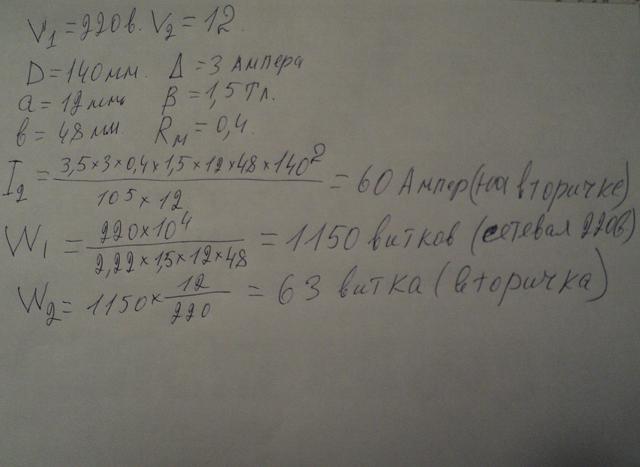 V₁ = 220в. V₂ = 12.
D = 140 мм. Δ = 3 Ампера
a = 12 мм. B = 1,5 Тл.
в = 48 мм. Rм = 0,4.
I₂ = (3,5×3×0,4×1,5×12×48×140²)/(10⁵×12) = 60 Ампер (на вторичке)
W₁ = (220×10⁴)/(2,22×1,5×12×48) = 1150 витков (сетевая 220в)
W₂ = 1150×12/220 = 63 витка (вторичка)